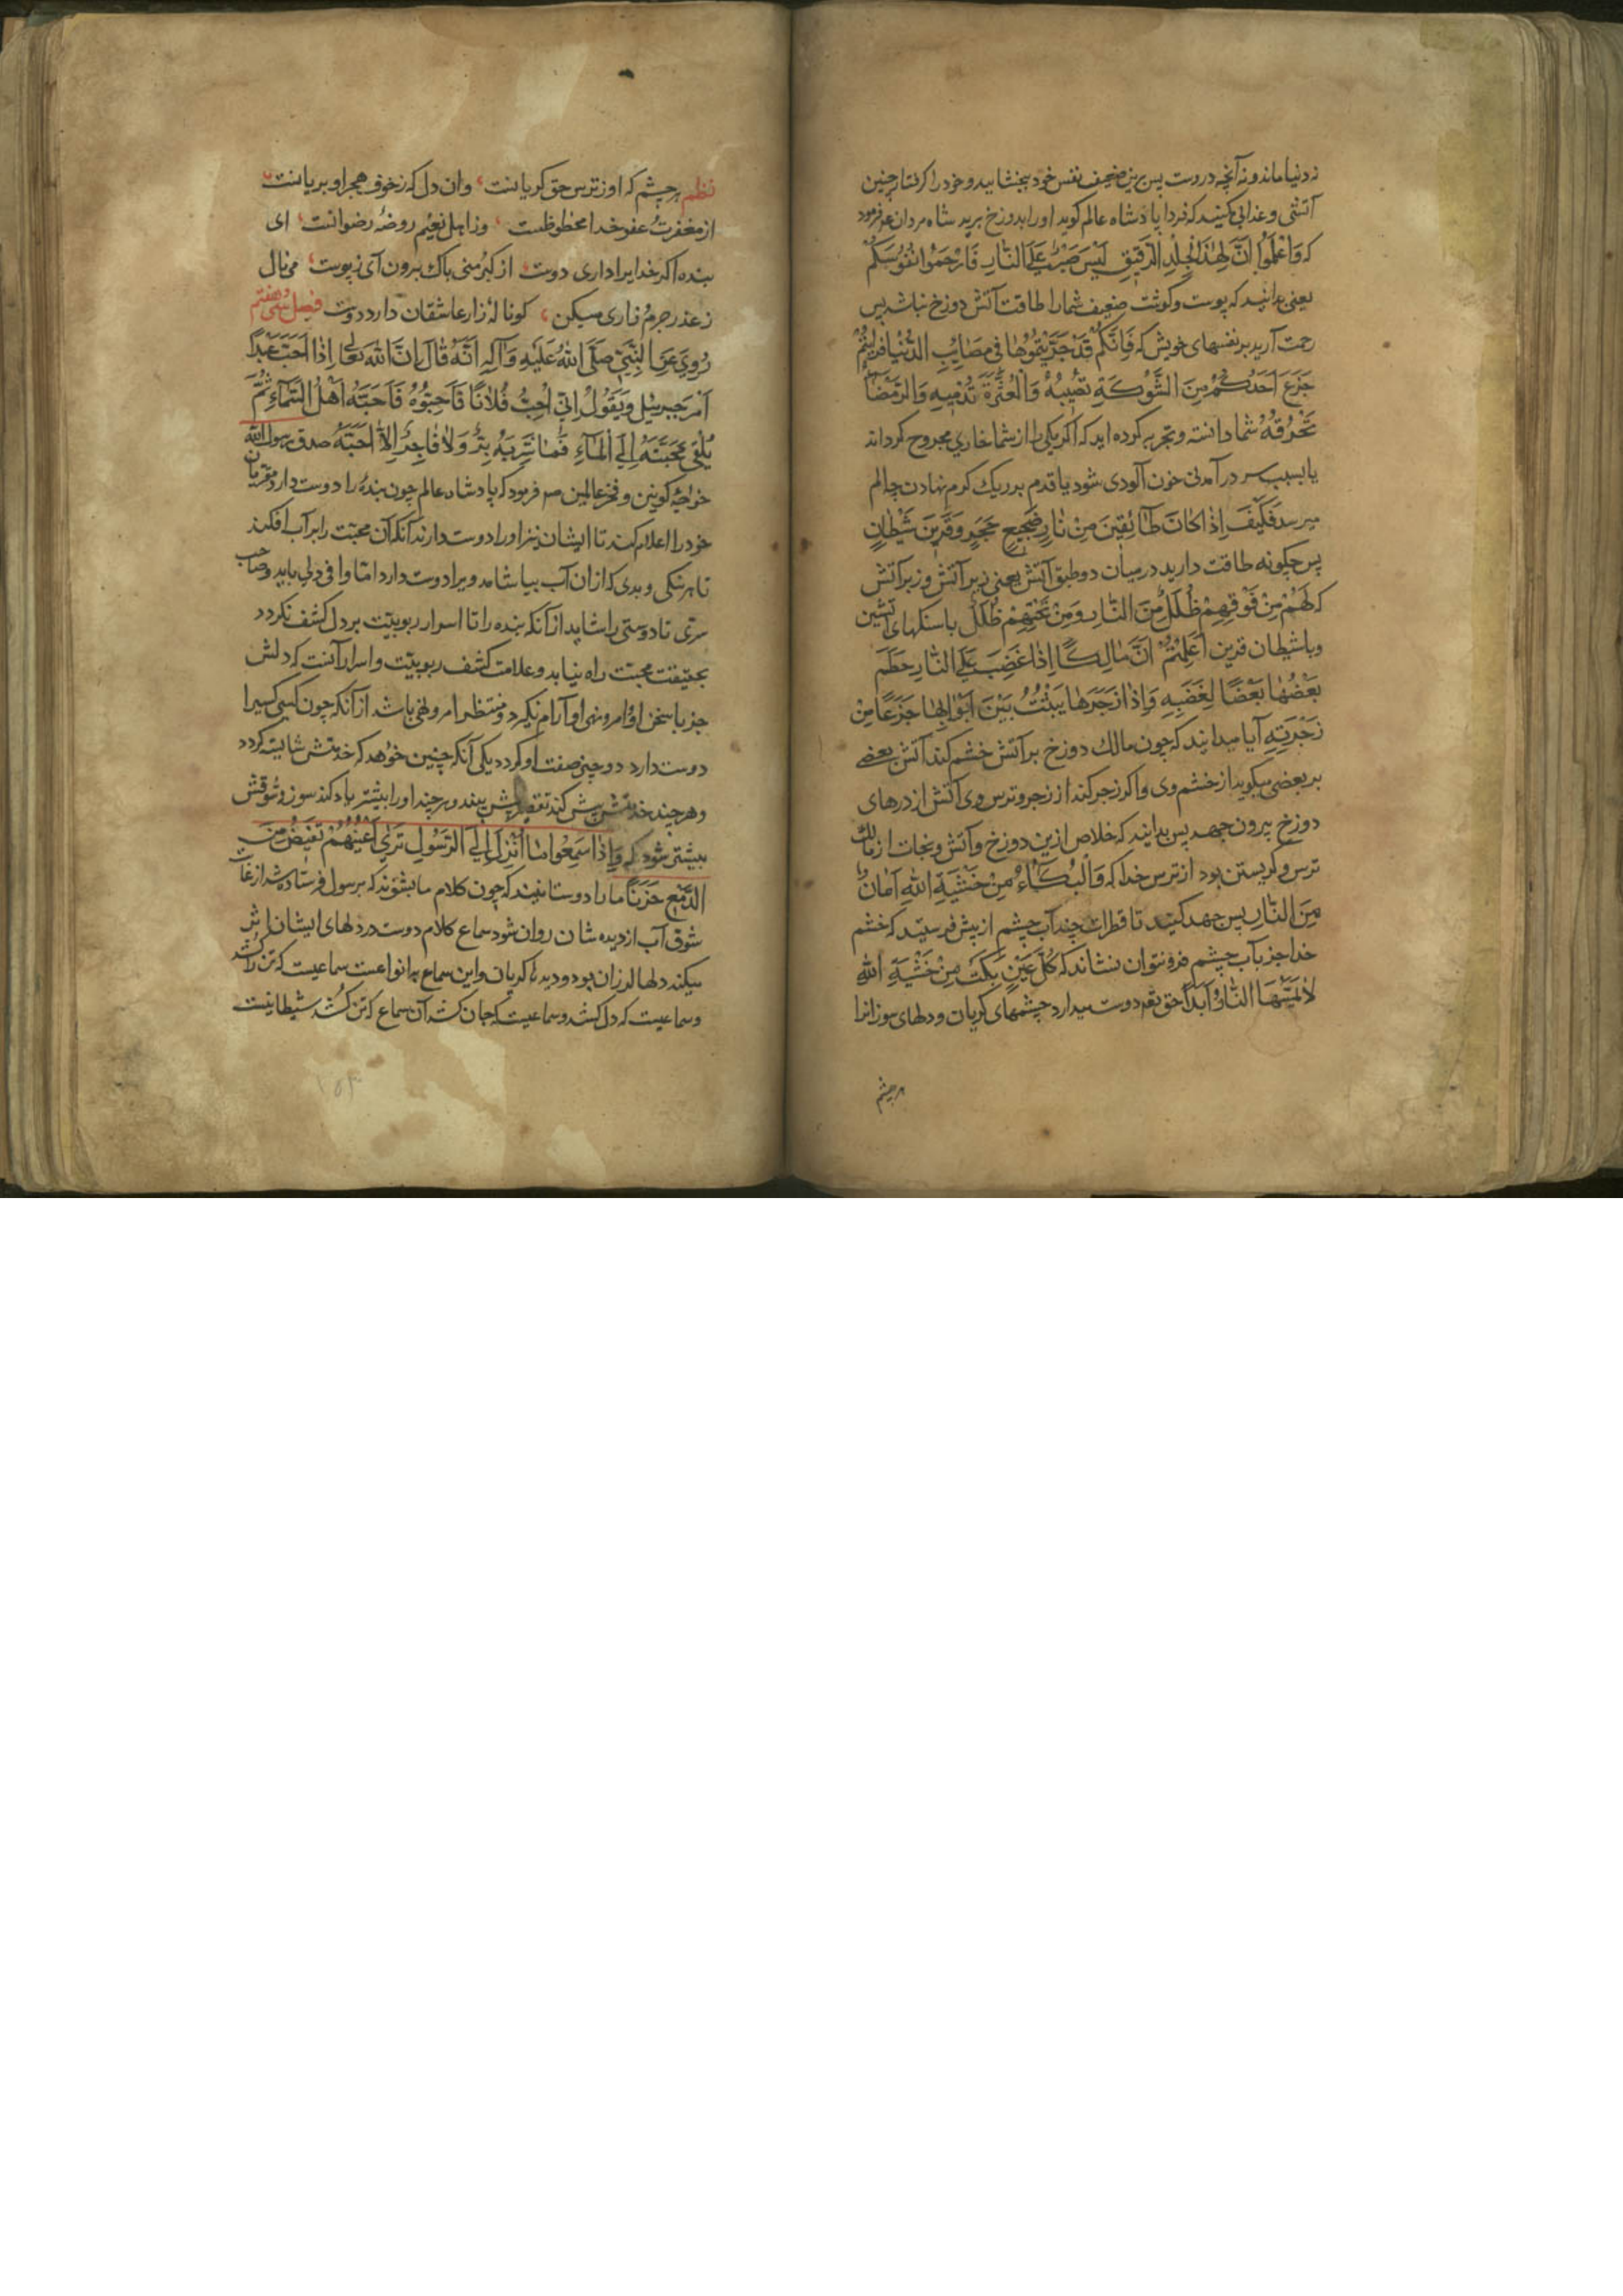 نه دنیا ماند و نه آنچه دروست پس برین ضعیف نفس خود ببخشایید و خود را گرفتار چنین
آتشی و عذابی مکنید که فردا پادشاه عالم گوید او را بدوزخ برید شاه مردان فرمود
که وَاعْلَمُوا اَنَّ لِهٰذَا الْجِلْدِ الرَّقِیقِ لَیْسَ صَبْرٌ عَلَی النَّارِ فَارْحَمُوا نُفُوسَکُمْ
یعنی بدانید که پوست و گوشت ضعیف شما را طاقت آتش دوزخ نباشد پس
رحمت آرید بر نفسهای خویش که فَاِنَّکُمْ قَدْ جَرَّبْتُمُوهَا فِی مَصَایِبِ الدُّنْیَا فَرَاَیْتُمْ
جَزَعَ اَحَدِکُمْ مِنَ الشَّوْکَةِ تُصِیبُهُ وَالْعَثْرَةِ تُدْمِیهِ وَالرَّمْضَاءُ
تُحْرِقُهُ شما دانسته و تجربه کرده اید که اگر یکی را از شما خاری مجروح گرداند
یا بسبب سر در آمدنی خون آلودی شود یا قدم بر ریک گرم نهادن چه الم
میرسد فَکَیْفَ اِذَا کَانَ طَابِقَیْنَ مِنْ نَارٍ ضَجِیعِ حَجَرٍ وَقَرِینَ شَیْطَانٍ
پس چگونه طاقت دارید در میان دو طبق آتش یعنی زیر آتش و زبر آتش
که لَهُمْ مِنْ فَوْقِهِمْ ظُلَلٌ مِنَ النَّارِ وَمِنْ تَحْتِهِمْ ظُلَلٌ با سنگهای آتشین
و با شیطان قرین اَعَلِمْتُمْ اَنَّ مَالِکًا اِذَا غَضِبَ عَلَی النَّارِ حَطَمَ
بَعْضُهَا بَعْضًا لِغَضَبِهِ وَاِذَا زَجَرَهَا تَوَثَّبَتْ بَیْنَ اَبْوَابِهَا جَزَعًا مِنْ
زَجْرَتِهِ آیا میدانید که چون مالک دوزخ بر آتش خشم کند آتش بعضی
بر بعضی میکوبد از خشم وی و اگر زجر کند از زجر و ترس وی آتش از درهای
دوزخ بیرون جهد پس بدانید که خلاص ازین دوزخ و آتش و نجات از مالک
ترس و گریستن بود از ترس خدا که وَالْبُکَاءُ مِنْ خَشْیَةِ اللهِ اَمَانٌ
مِنَ النَّارِ پس جهد کنید تا قطرات چند آب چشم از پیش فرستید که خشم
خدا جز بآب چشم فرو نتوان نشاند که کُلُّ عَیْنٍ بَکَتْ مِنْ خَشْیَةِ اللهِ
لَا تَمَسُّهَا النَّارُ اَبَدًا حق تعه دوست میدارد چشمهای گریان و دلهای سوزانرا
هر چشم
نظم هر چشم که او ز ترس حق گریانست وان دل که ز خوف هجر او بریانست
از مغفرت عفو خدا محظوظست وز اهل نعیم روضۀ رضوانست ای
بنده اگر خدایرا داری دوست از کبر منی پاک برون آی ز پوست می نال
ز عذر جرم و زاری میکن کو نالۀ زار عاشقان دارد دوست فصل سی و هفتم
رُوِیَ عَنِ النَّبِیِّ صَلَّی اللهُ عَلَیْهِ وَآلِهِ اَنَّهُ قَالَ اِنَّ اللهَ تَعَالَی اِذَا اَحَبَّ عَبْدًا
اَمَرَ جِبْرِئِیلَ وَیَقُولُ اِنِّی اُحِبُّ فُلَانًا فَاَحِبُّوهُ فَاَحَبَّهُ اَهْلُ السَّمَاءِ ثُمَّ
یُلْقِی مَحَبَّتَهُ اِلَی الْمَاءِ فَمَا شَرِبَهُ بَرٌّ وَلَا فَاجِرٌ اِلَّا اَحَبَّهُ صدق رسول الله
خواجۀ کونین و فخر عالمین صم فرمود که پادشاه عالم چون بندۀ را دوست دارد مقربان
خود را اعلام کند تا ایشان نیز او را دوست دارند آنکه آن محبت را بر آب افکند
تا هر نیکی و بدی که از ان آب بیاشامد ویرا دوست دارد اما وافی دلی باید و صاحب
سرّی تا دوستی را شاید از آنکه بنده را تا اسرار ربوبیّت بر دل کشف نگردد
بحقیقت محبت راه نیابد و علامت کشف ربوبیّت و اسرار آنست که دلش
جز با سخن او و امر و نهی او آرام نگیرد و منتظر امر و نهی باشد از آنکه چون کسی کسیرا
دوست دارد دو چیز صفت او گردد یکی آنکه چنین خواهد که خدمتش شایسته گردد
و هر چند خدمتش بیش کند تقصیرش بیند و هر چند او را بیشتر یاد کند سوز و شوقش
بیشتر شود که وَاِذَا سَمِعُوا مَا اُنْزِلَ اِلَی الرَّسُولِ تَرَی اَعْیُنَهُمْ تَفِیضُ مِنَ
الدَّمْعِ حَزَنًا ما را دوستانیند که چون کلام ما بشنوند که بر رسول فرستاده شد از غایت
شوق آب از دیده شان روان شود سماع کلام دوست در دلهای ایشان اثر
میکند دلها لرزان بود و دیدها گریان و این سماع به انواعست سماعیست که تن را کشد
و سماعیست که دل کشد و سماعیست که جان کشد آن سماع که تن کشد شیطانیست